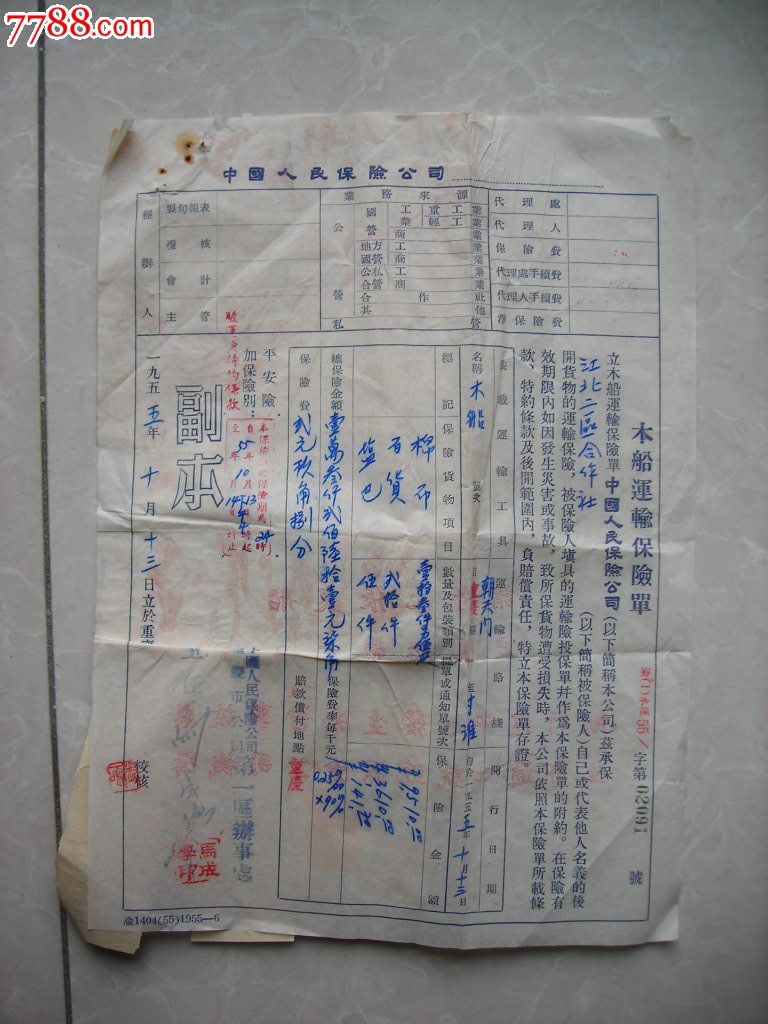 7788.com
中國人民保險公司
業務來源
國營
工業
重工業
輕工業
商業
地方國營
工業
公私合營
工業
商業
合作社
其他
公營
私營
代理處
代理人
保險費
代理處手續費
代理人手續費
淨保險費
經辦人
製旬報表
覆核
會計
主管
木船運輸保險單
字第02091號
立木船運輸保險單中國人民保險公司(以下簡稱本公司)茲承保
江北二區合作社(以下簡稱被保險人)自己或代表他人名義的後
開貨物的運輸保險,被保險人塡具的運輸險投保單幷作爲本保險單的附約。在保險有
效期限內如因發生災害或事故,致所保貨物遭受損失時,本公司依照本保險單所載條
款、特約條款及後開範圍內,負賠償責任,特立本保險單存證。
裝載運輸工具
運輸路綫
開行日期
名稱
木船
號次
朝天門
至
一九五五年十月十三日
標記
保險貨物項目
數量及包裝類別
提單或通知單號次
保險金額
棉布
百貨
貳拾件
鹽巴
伍件
總保險金額
壹萬叁仟貳佰陸拾壹元柒角
保險費率每千元
保險費
貳元玖角捌分
賠款償付地點
重慶
平安險.
加保險別:
本保險單之保險期爲24時
自55年10月13日
至 年 月14日 時止
副本
一九五五年十月十三日立於重慶
中國人民保險公司
重慶市公司第一區辦事處
馬成學印
校核
渝1404(55)1955—6